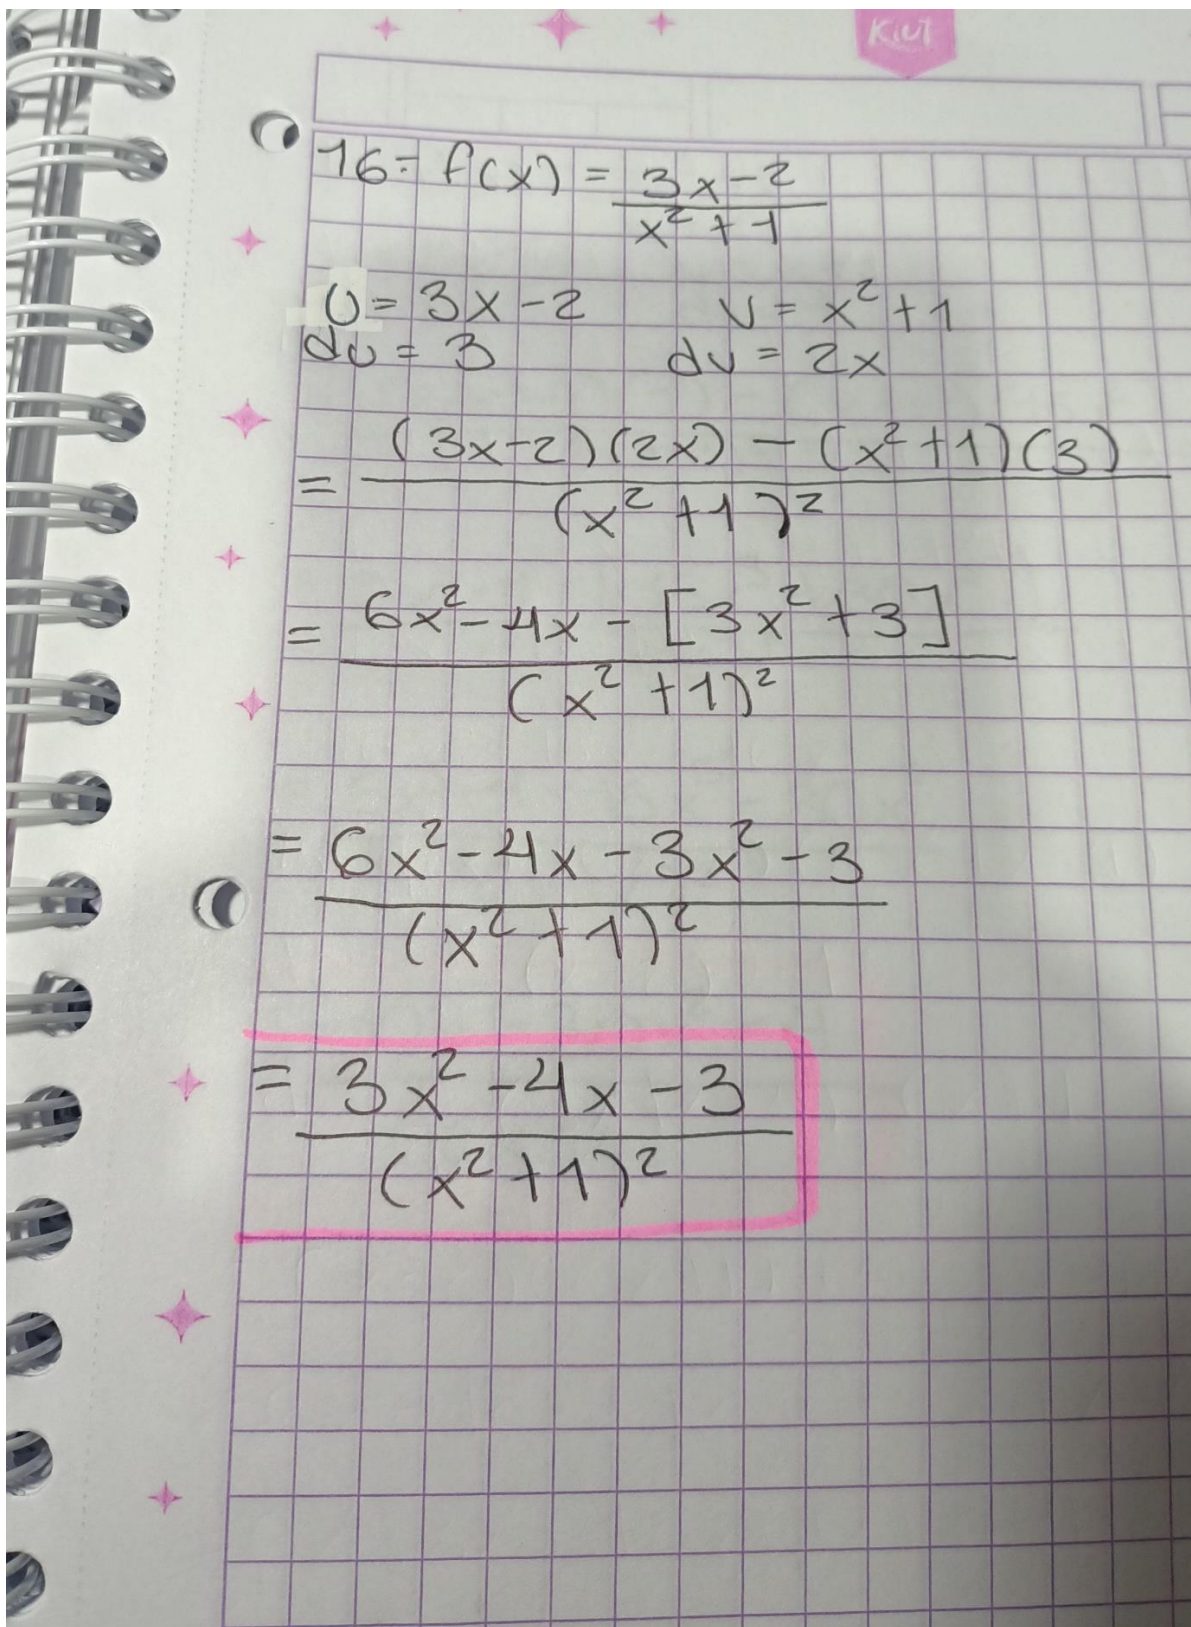 Kiut
16.- f(x) = \frac{3x-2}{x^2+1}
U = 3x-2 v = x^2+1
du = 3 dv = 2x
= \frac{(3x-2)(2x) - (x^2+1)(3)}{(x^2+1)^2}
= \frac{6x^2-4x-[3x^2+3]}{(x^2+1)^2}
= \frac{6x^2-4x-3x^2-3}{(x^2+1)^2}
= \frac{3x^2-4x-3}{(x^2+1)^2}